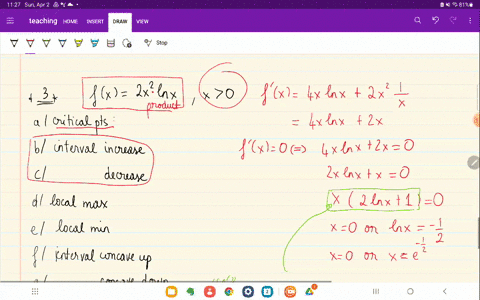 11:27 Sun, Apr 2
81%
teaching
HOME INSERT DRAW VIEW
Stop
3 f(x) = 2x² lnx, x>0
product
a/ critical pts:
b/ interval increase
c/ decrease
d/ local max
e/ local min
f/ interval concave up
concave down
f'(x) = 4x lnx + 2x² 1/x
= 4x lnx + 2x
f'(x)=0 (=) 4x lnx + 2x = 0
2x lnx + x = 0
x (2 lnx + 1) = 0
x = 0 or lnx = -1/2
x = 0 or x = e^-1/2